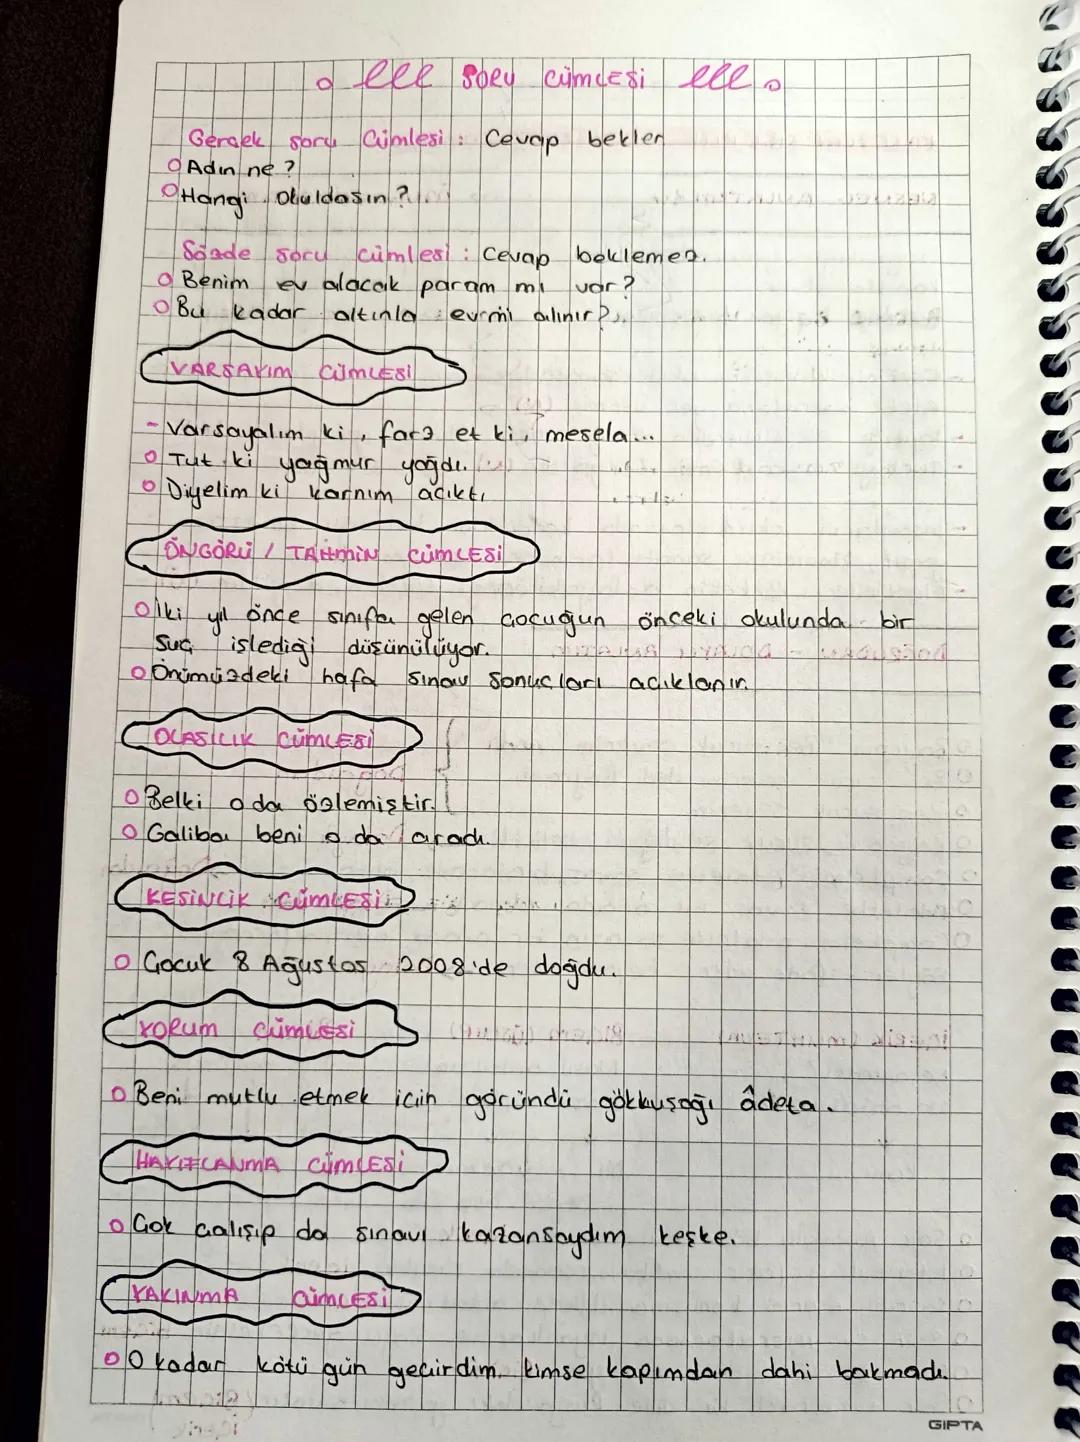 Soru Cümlesi
Gerçek soru Cümlesi : Cevap bekler
Adın ne ?
Hangi Okuldasın ?
Sözde soru cümlesi : Cevap beklemez.
Benim ev alacak param mı var ?
Bu kadar altınla ev mi alınır ?
VARSAYIM CÜMLESİ
- Varsayalım ki , farz et ki , mesela...
Tut ki yağmur yağdı.
Diyelim ki karnım acıktı
ÖNGÖRÜ / TAHMİN CÜMLESİ
İki yıl önce sınıfa gelen çocuğun önceki okulunda bir
suç işlediği düşünülüyor.
Önümüzdeki hafa sınav sonuçları açıklanır.
OLASILIK CÜMLESİ
Belki o da özlemiştir.
Galiba beni o da aradı.
KESİNLİK CÜMLESİ
Çocuk 8 Ağustos 2008'de doğdu.
YORUM CÜMLESİ
Beni mutlu etmek için göründü gökkuşağı âdeta.
HAYIFLANMA CÜMLESİ
Çok çalışıp da sınavı kazansaydım keşke.
YAKINMA CÜMLESİ
O kadar kötü gün geçirdim kimse kapımdan dahi bakmadı.
GIPTA